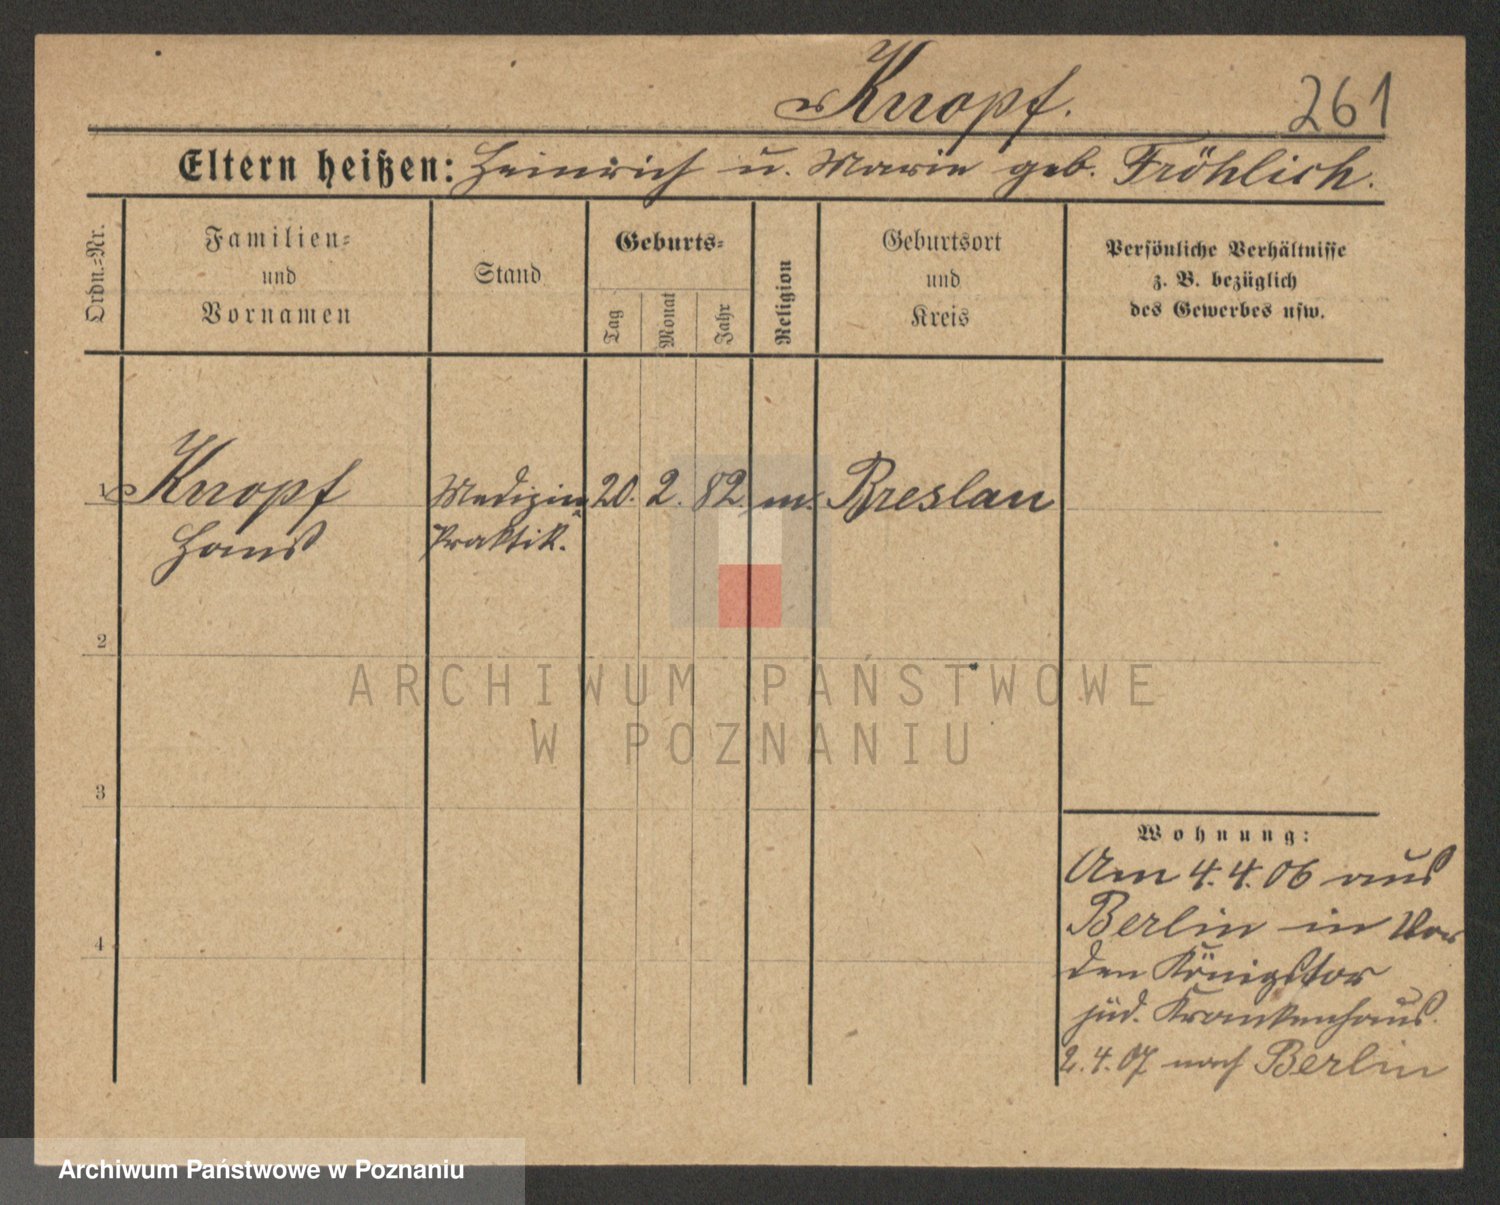 Knopf.
261
Eltern heißen: Heinrich u. Marie geb. Fröhlich.
Ordn.=Nr.
Familien=
und
Vornamen
Stand
Geburts=
Tag
Monat
Jahr
Religion
Geburtsort
und
Kreis
Persönliche Verhältnisse
z. B. bezüglich
des Gewerbes usw.
1 Knopf Medizin= 20. 2. 82. m. Breslau
Hans Praktik.
2
3
4
ARCHIWUM PAŃSTWOWE
W POZNANIU
Wohnung:
Am 4.4.06 aus
Berlin in Vor
den Königstor
jüd. Krankenhaus.
2.4.07 nach Berlin
Archiwum Państwowe w Poznaniu